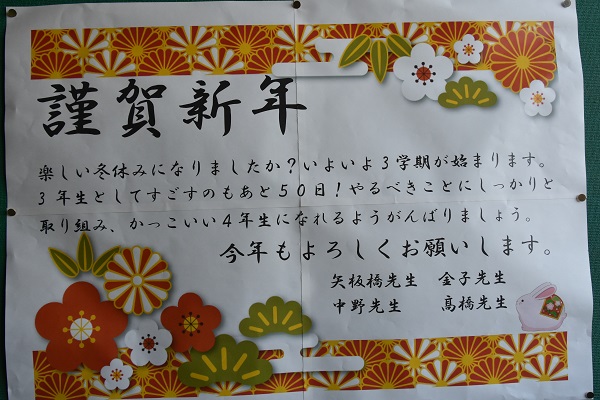 謹賀新年
楽しい冬休みになりましたか？いよいよ３学期が始まります。
３年生としてすごすのもあと５０日！やるべきことにしっかりと
取り組み、かっこいい４年生になれるようがんばりましょう。
今年もよろしくお願いします。
矢板橋先生 金子先生
中野先生 髙橋先生